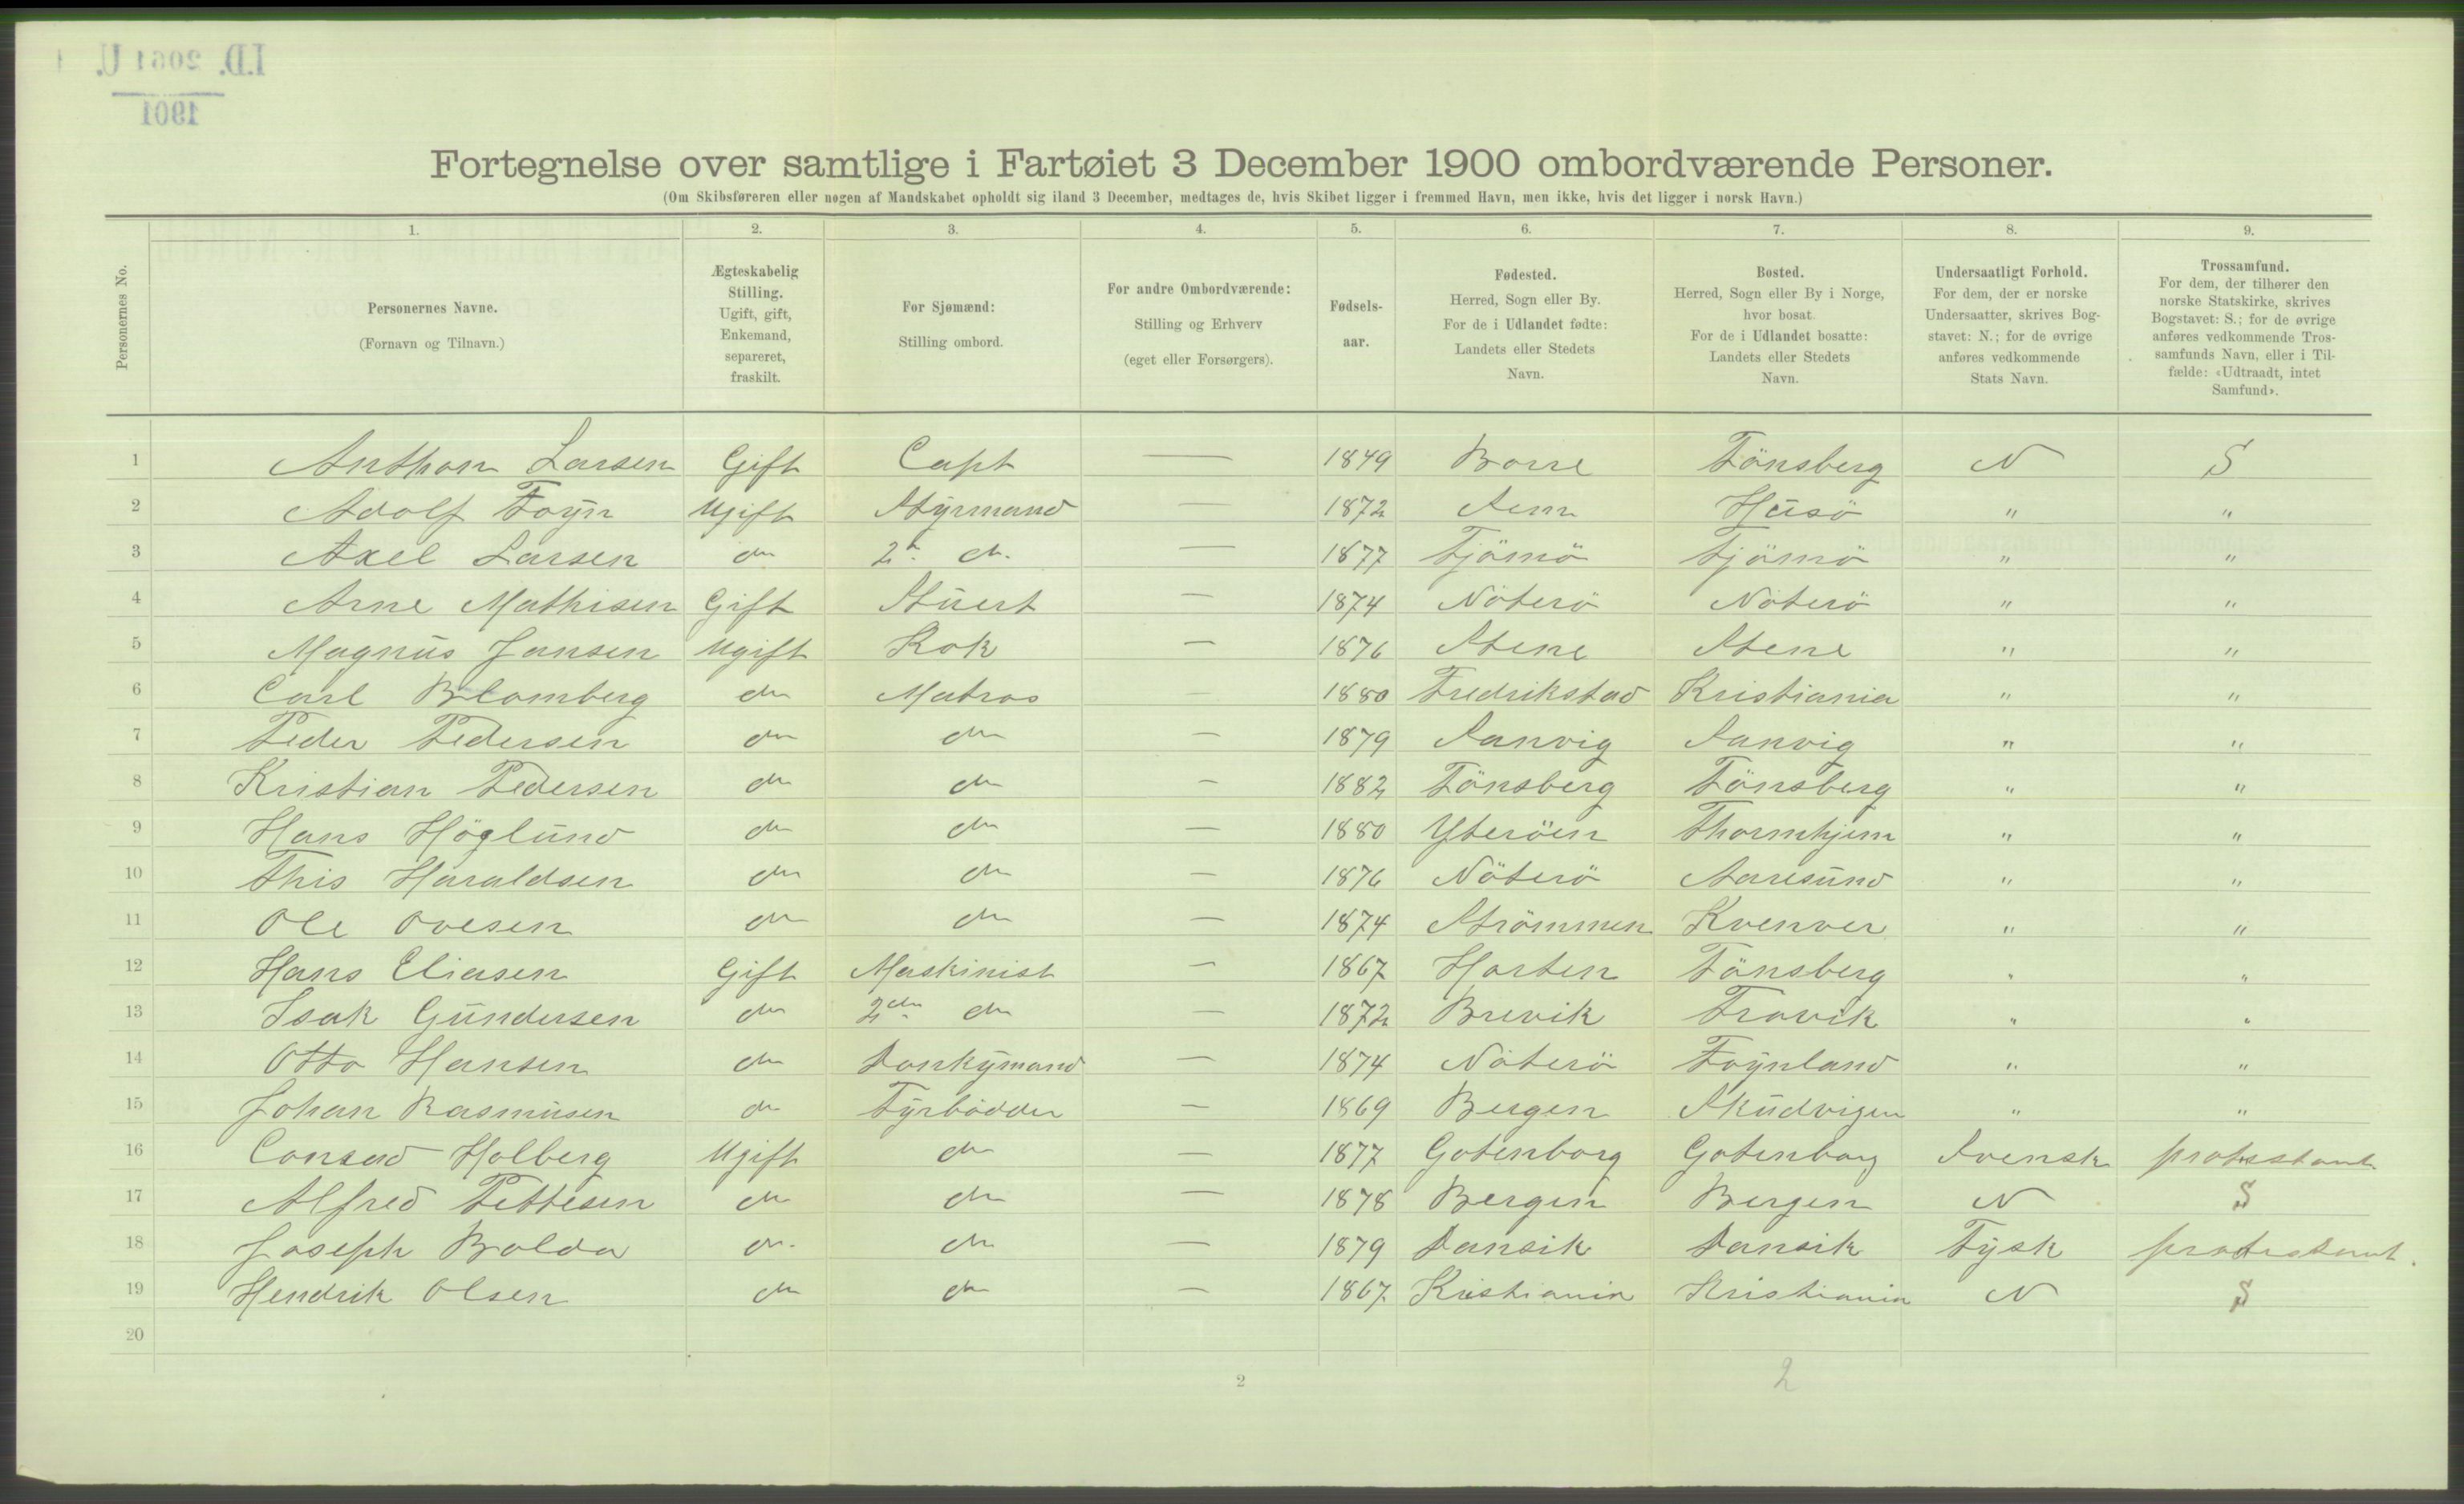 I.D. 2061 U.
1901
Fortegnelse over samtlige i Fartøiet 3 December 1900 ombordværende Personer.
(Om Skibsføreren eller nogen af Mandskabet opholdt sig iland 3 December, medtages de, hvis Skibet ligger i fremmed Havn, men ikke, hvis det ligger i norsk Havn.)
Personernes No.
1. 2. 3. 4. 5. 6. 7. 8. 9.
Personernes Navne.
(Fornavn og Tilnavn.)
Ægteskabelig
Stilling.
Ugift, gift,
Enkemand,
separeret,
fraskilt.
For Sjømænd:
Stilling ombord.
For andre Ombordværende:
Stilling og Erhverv
(eget eller Forsørgers).
Fødsels-
aar.
Fødested.
Herred, Sogn eller By.
For de i Udlandet fødte:
Landets eller Stedets
Navn.
Bosted.
Herred, Sogn eller By i Norge,
hvor bosat.
For de i Udlandet bosatte:
Landets eller Stedets
Navn.
Undersaatligt Forhold.
For dem, der er norske
Undersaatter, skrives Bog-
stavet: N.; for de øvrige
anføres vedkommende
Stats Navn.
Trossamfund.
For dem, der tilhører den
norske Statskirke, skrives
Bogstavet: S.; for de øvrige
anføres vedkommende Tros-
samfunds Navn, eller i Til-
fælde: «Udtraadt, intet
Samfund».
1 Anthon Larsen Gift Capt — 1849 Borre Tönsberg N S
2 Adolf Foyn Ugift Styrmand — 1872 Sem Husö " "
3 Axel Larsen do 2n. do. — 1877 Tjömö Tjömö " "
4 Arne Mathisen Gift Stuert — 1874 Nöterö Nöterö " "
5 Magnus Jansen Ugift Kok — 1876 Stene Stene " "
6 Carl Blomberg do Matros — 1880 Fredrikstad Kristiania " "
7 Peder Pedersen do do — 1879 Sanvig Sanvig " "
8 Kristian Pedersen do do — 1882 Tönsberg Tönsberg " "
9 Hans Höglund do do — 1880 Yteröen Thornhjem " "
10 This Haraldsen do do — 1876 Nöterö Aaresund " "
11 Ole Ovesen do do — 1874 Strömmen Kvenver " "
12 Hans Eliasen Gift Maskinist — 1867 Horten Tönsberg " "
13 Isak Gundersen do 2den do — 1872 Brevik Travik " "
14 Otto Hansen do Donkymand — 1874 Nöterö Foynland " "
15 Johan Rasmusen do Fyrbödder — 1869 Bergen Skudvigen " "
16 Conrad Holberg Ugift do — 1877 Gotenborg Gotenborg Svensk protestant
17 Alfred Pettesen do do — 1878 Bergen Bergen N S
18 Joseph Bolda do. do — 1879 Dansik Dansik Tysk protestant.
19 Hendrik Olsen do do — 1867 Kristiania Kristiania N S
20
2
2